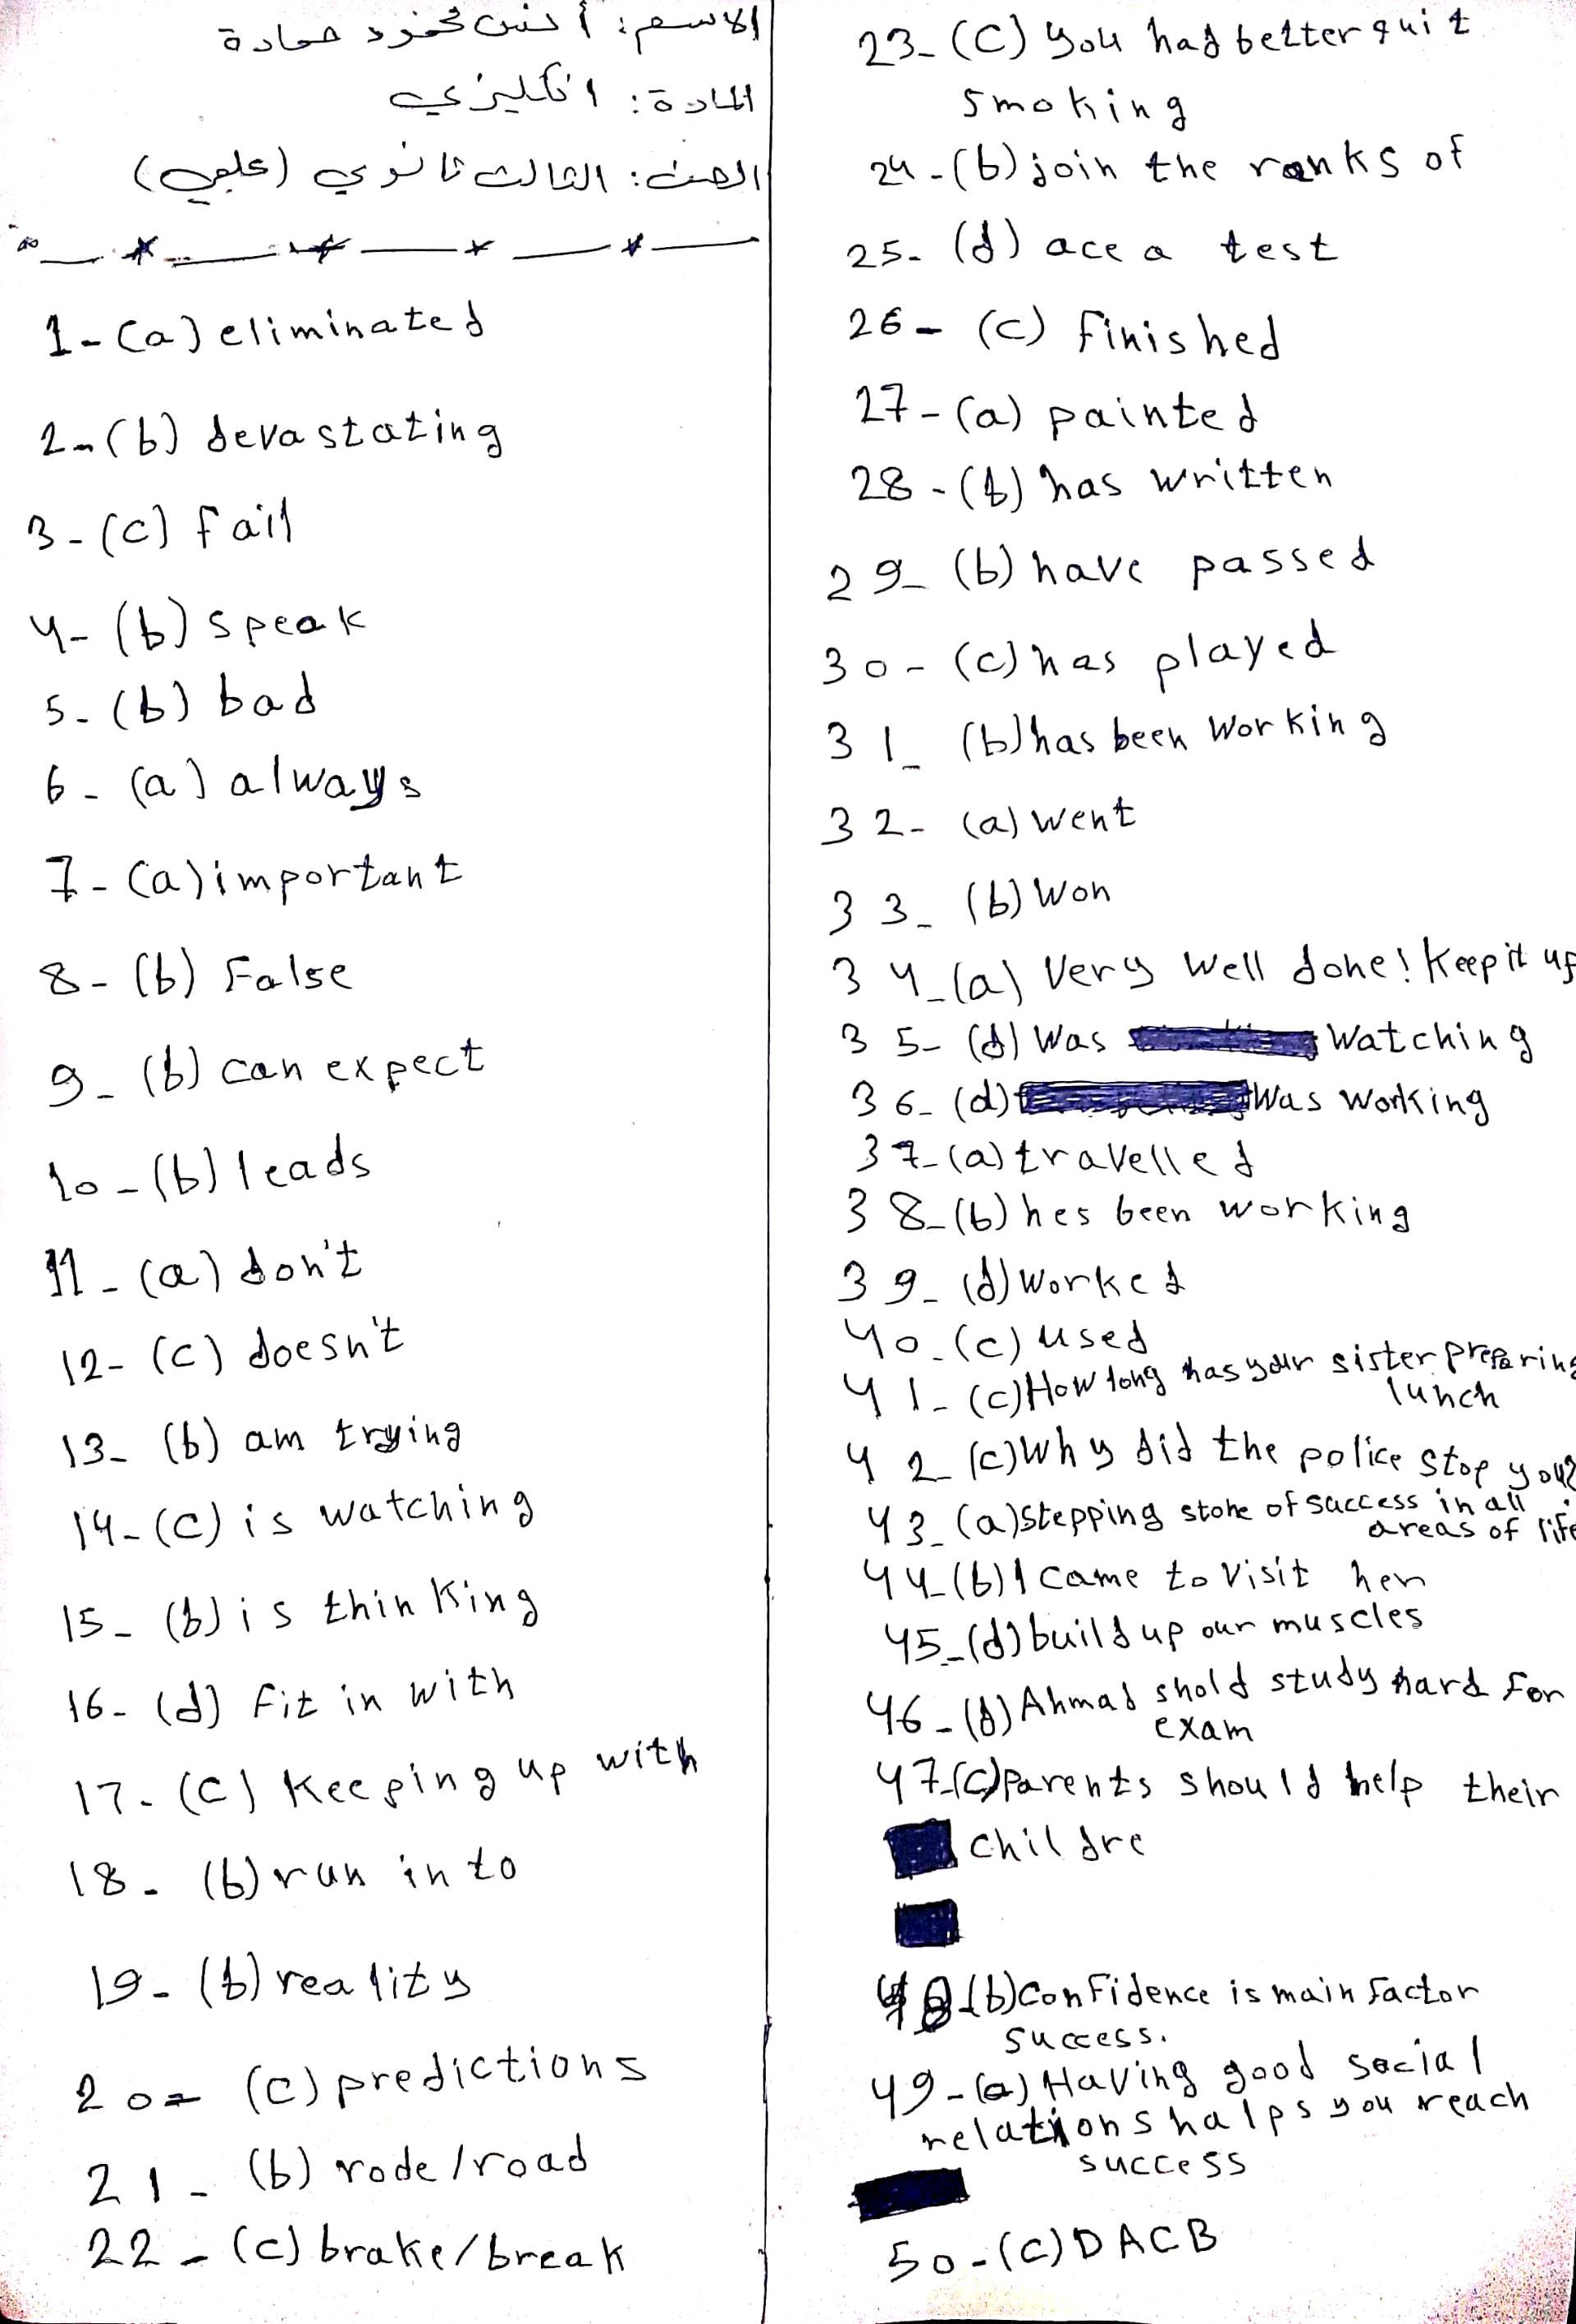 الاسم: أنس محمود حمادة
المادة: انكليزي
الصف: الثالث ثانوي (علمي)
1-(a) eliminated
2-(b) devastating
3-(c) fail
4-(b) speak
5-(b) bad
6-(a) always
7-(a) important
8-(b) False
9-(b) can expect
10-(b) leads
11-(a) don't
12-(c) doesn't
13-(b) am trying
14-(c) is watching
15-(b) is thinking
16-(d) fit in with
17-(c) Keeping up with
18-(b) run into
19-(b) reality
20-(c) predictions
21-(b) rode/road
22-(c) brake/break
23-(c) you had better quit
smoking
24-(b) join the ranks of
25-(d) ace a test
26-(c) finished
27-(a) painted
28-(b) has written
29-(b) have passed
30-(c) has played
31-(b) has been working
32-(a) went
33-(b) Won
34-(a) Very well done! Keep it up
35-(d) Was Watching
36-(d) Was working
37-(a) travelled
38-(b) hes been working
39-(d) Worked
40-(c) used
41-(c) How long has your sister preparing
lunch
42-(c) Why did the police stop you?
43-(a) stepping stone of success in all
areas of life
44-(b) I came to visit her
45-(d) build up our muscles
46-(d) Ahmad shold study hard for
exam
47-(c) Parents should help their
childre
48-(b) confidence is main factor
success.
49-(a) Having good social
relations halps you reach
success
50-(c) DACB